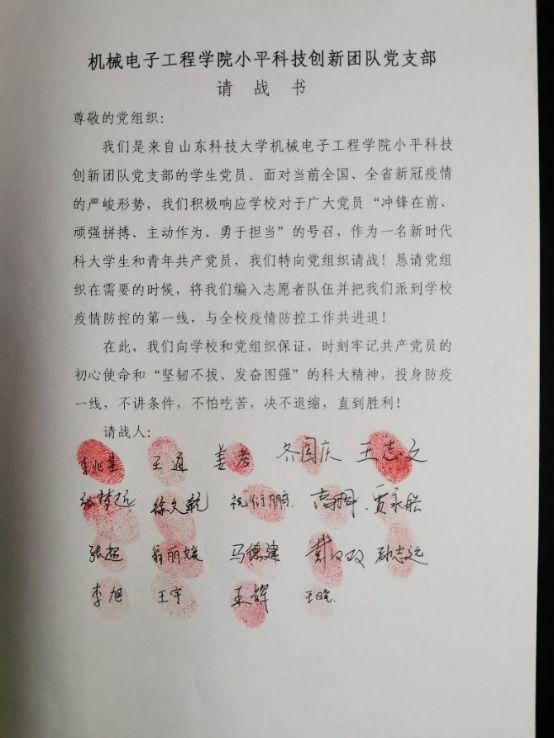 机械电子工程学院小平科技创新团队党支部
请 战 书
尊敬的党组织：
我们是来自山东科技大学机械电子工程学院小平科技
创新团队党支部的学生党员。面对当前全国、全省新冠疫情
的严峻形势，我们积极响应学校对于广大党员“冲锋在前、
顽强拼搏、主动作为、勇于担当”的号召，作为一名新时代
科大学生和青年共产党员，我们特向党组织请战！恳请党组
织在需要的时候，将我们编入志愿者队伍并把我们派到学校
疫情防控的第一线，与全校疫情防控工作共进退！
在此，我们向学校和党组织保证，时刻牢记共产党员的
初心使命和“坚韧不拔、发奋图强”的科大精神，投身防疫
一线，不讲条件，不怕吃苦，决不退缩，直到胜利！
请战人：
王通 姜考 冬国庆 王志文
张梦远 徐文乾 祝衍鹏 高翔 贾永航
张超 翁丽媛 马德建
李旭 王宇 王辉 王晓